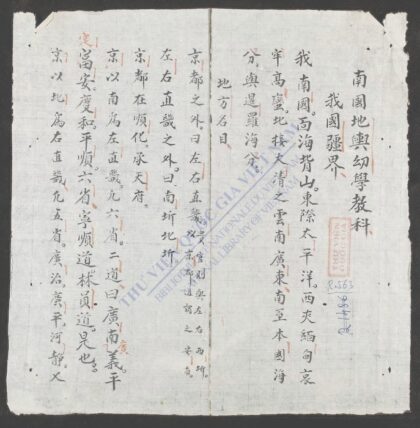 南國地輿幼學教科
我國疆界
我南國。面海背山。東際太平洋。西夾緬甸哀
牢高蠻。北接大清之雲南廣東。南至本國海
分。與暹羅海分。
地方名目
京都之外。曰左右直畿
左右直畿之外。曰南圻北圻
京都在順化。承天府。
京以南爲左直畿。凡六省二道。曰廣南義。平
富安。慶和。平順六省。寧順道。林員道。是也。
京以北爲右直畿。凡五省。廣治。廣平。河靜。乂
THƯ VIỆN QUỐC GIA VIỆT NAM
BIBLIOTHÈQUE NATIONALE DU VIETNAM
NATIONAL LIBRARY OF VIETNAM